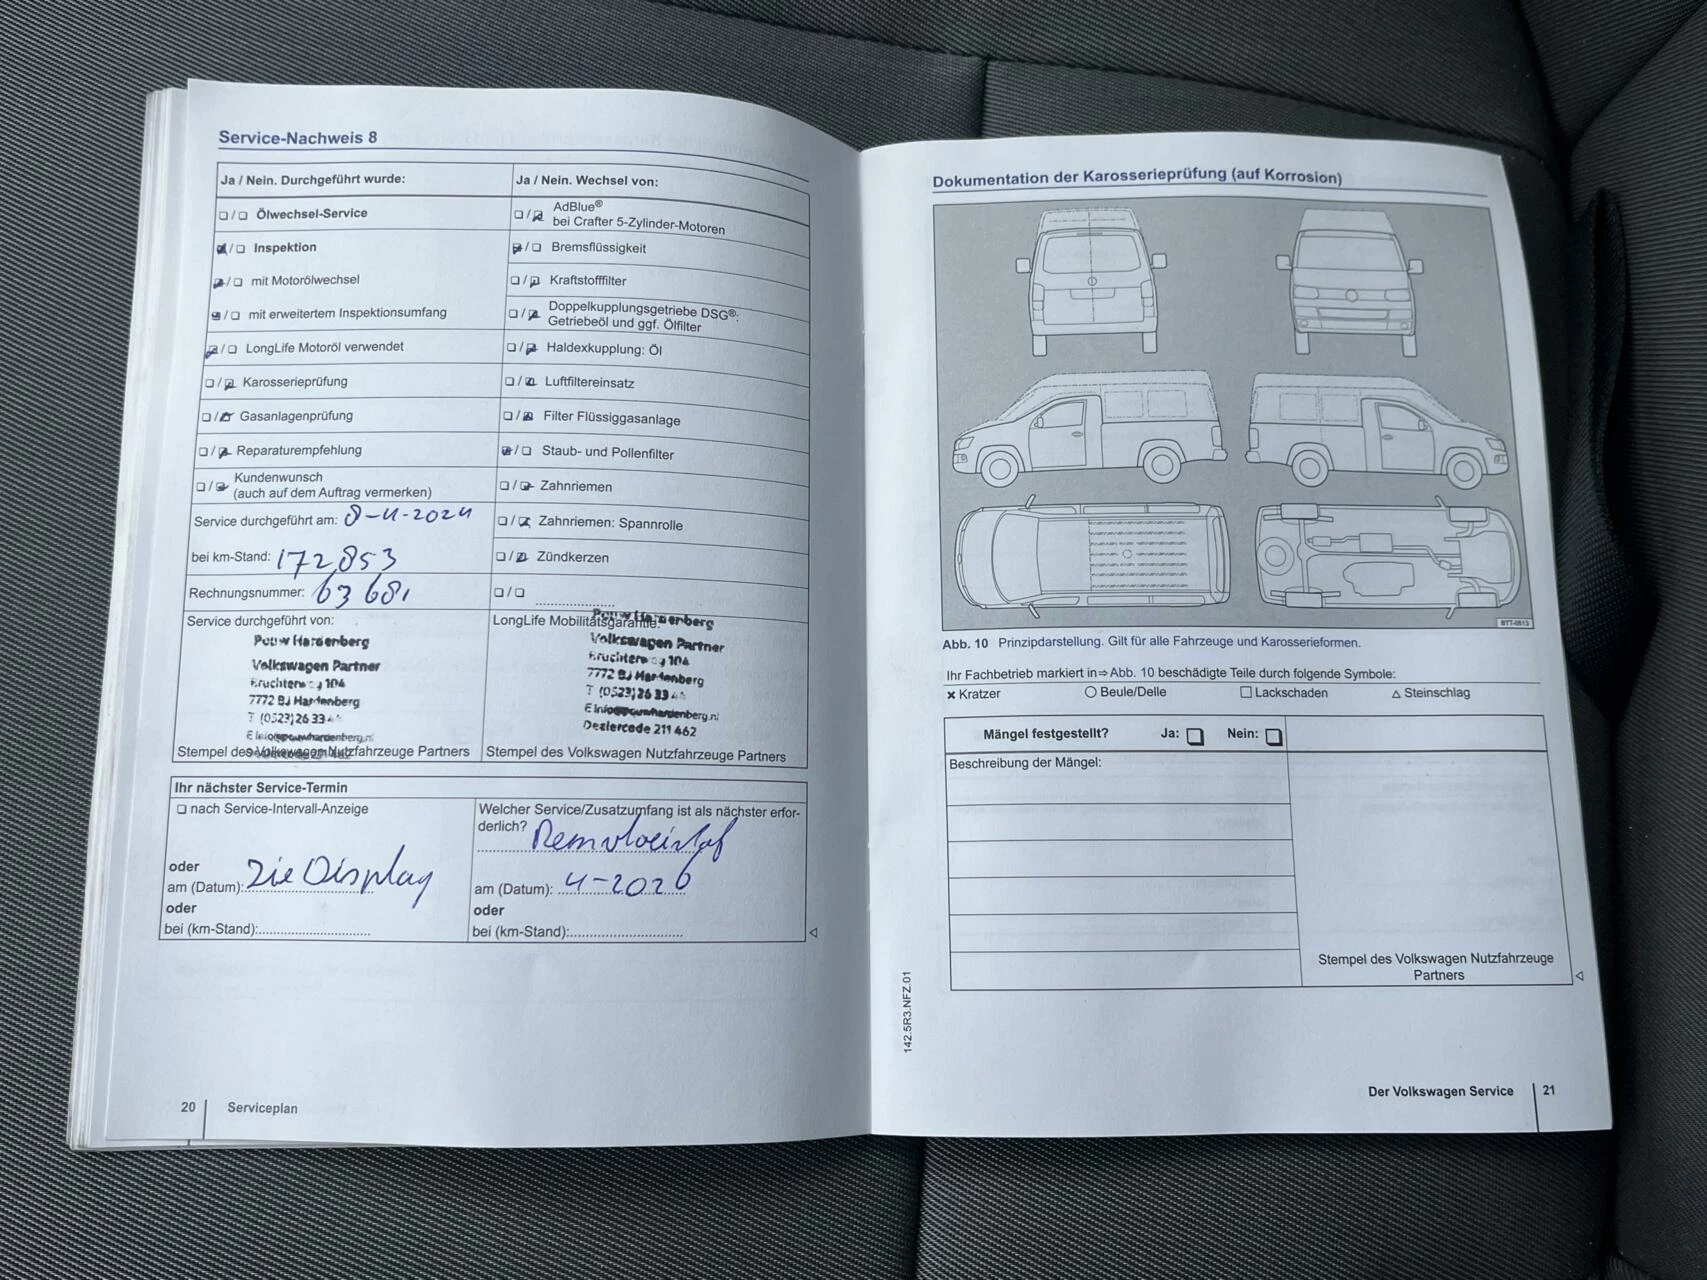 Service-Nachweis 8
Ja / Nein. Durchgeführt wurde:
Ölwechsel-Service
Inspektion
mit Motorölwechsel
mit erweitertem Inspektionsumfang
LongLife Motoröl verwendet
Karosserieprüfung
Gasanlagenprüfung
Reparaturempfehlung
Kundenwunsch
(auch auf dem Auftrag vermerken)
Service durchgeführt am: 8-4-2024
bei km-Stand: 172.853
Rechnungsnummer: 63681
Service durchgeführt von:
Pouw Hardenberg
Volkswagen Partner
Bruchterweg 104
7772 BJ Hardenberg
T (0523) 26 33
E info@pouwhardenberg.nl
Stempel des Volkswagen Nutzfahrzeuge Partners
Ja / Nein. Wechsel von:
AdBlue®
bei Crafter 5-Zylinder-Motoren
Bremsflüssigkeit
Kraftstofffilter
Doppelkupplungsgetriebe DSG®:
Getriebeöl und ggf. Ölfilter
Haldexkupplung: Öl
Luftfiltereinsatz
Filter Flüssiggasanlage
Staub- und Pollenfilter
Zahnriemen
Zahnriemen: Spannrolle
Zündkerzen
LongLife Mobilitätsgarantie:
Pouw Hardenberg
Volkswagen Partner
Bruchterweg 104
7772 BJ Hardenberg
T (0523) 26 33
E info@pouwhardenberg.nl
Dealercode 211 462
Stempel des Volkswagen Nutzfahrzeuge Partners
Ihr nächster Service-Termin
nach Service-Intervall-Anzeige
oder
am (Datum): Zie Display
oder
bei (km-Stand):
Welcher Service/Zusatzumfang ist als nächster erfor-
derlich? Remvloeistof
am (Datum): 4-2026
oder
bei (km-Stand):
20 Serviceplan
Dokumentation der Karosserieprüfung (auf Korrosion)
BTT-0513
Abb. 10 Prinzipdarstellung. Gilt für alle Fahrzeuge und Karosserieformen.
Ihr Fachbetrieb markiert in⇒Abb. 10 beschädigte Teile durch folgende Symbole:
× Kratzer ○ Beule/Delle □ Lackschaden △ Steinschlag
Mängel festgestellt? Ja: Nein:
Beschreibung der Mängel:
Stempel des Volkswagen Nutzfahrzeuge
Partners
142.5R3.NFZ.01
Der Volkswagen Service 21